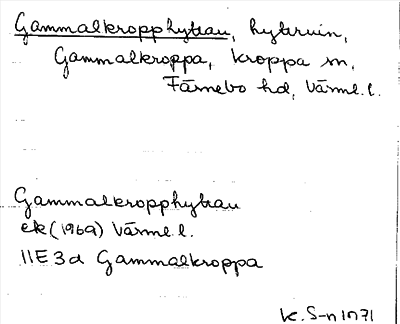 Gammalkropphyttan, hyttruin,
Gammalkroppa, Kroppa sn,
Färnebo hd, Värml. l.
Gammalkropphyttan
ek (1969) Värml. l.
11E3d Gammalkroppa
K. S-n 1971